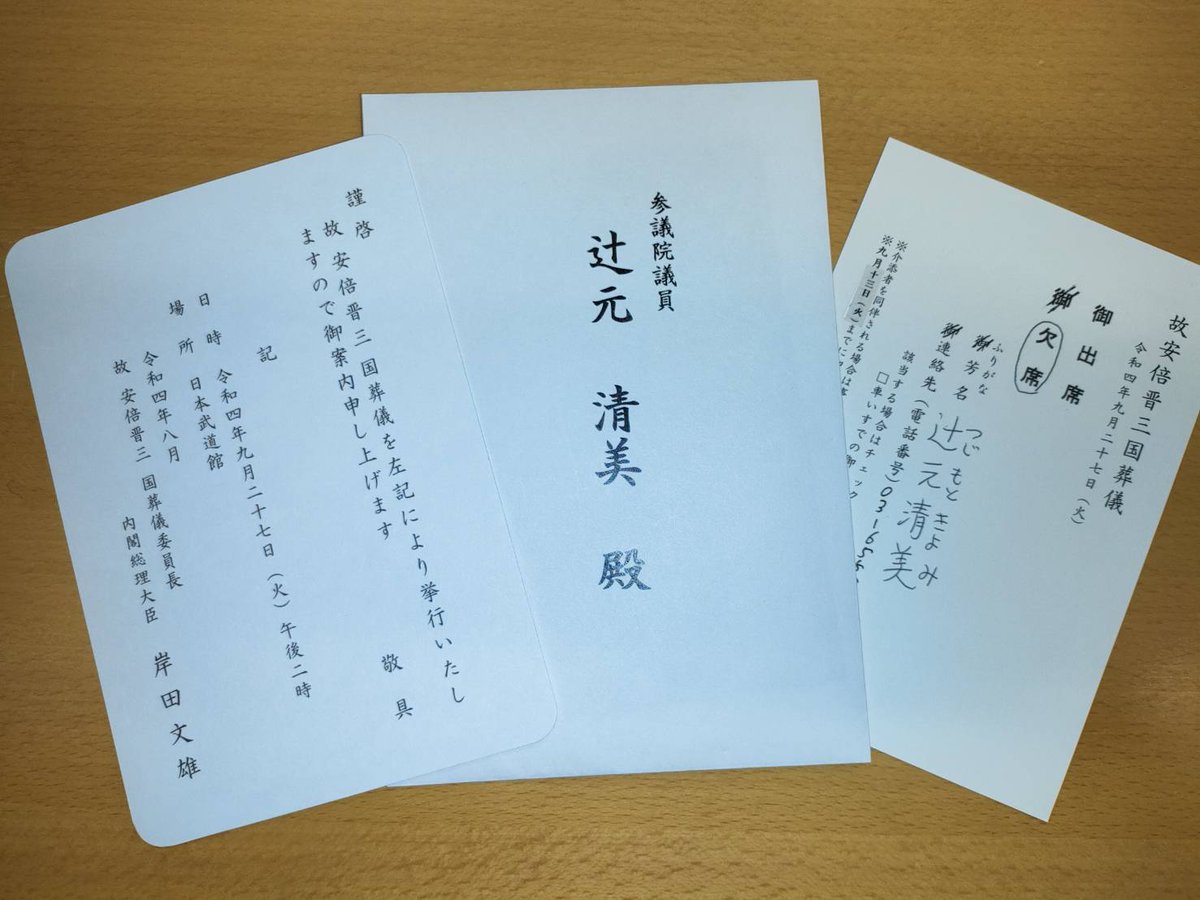 謹啓
故安倍晋三国葬儀を左記により挙行いたし
ますので御案内申し上げます
敬具
記
日時 令和四年九月二十七日（火）午後二時
場所 日本武道館
令和四年八月
故安倍晋三 国葬儀委員長
内閣総理大臣 岸田文雄
参議院議員
辻元 清美 殿
故安倍晋三国葬儀
令和四年九月二十七日（火）
御出席
御欠席
ふりがな つじもときよみ
御芳名 辻元清美
御連絡先（電話番号）03-65
該当する場合はチェック
□車いすでの御
※介添者を同伴される場合は
※九月十三日（火）までに